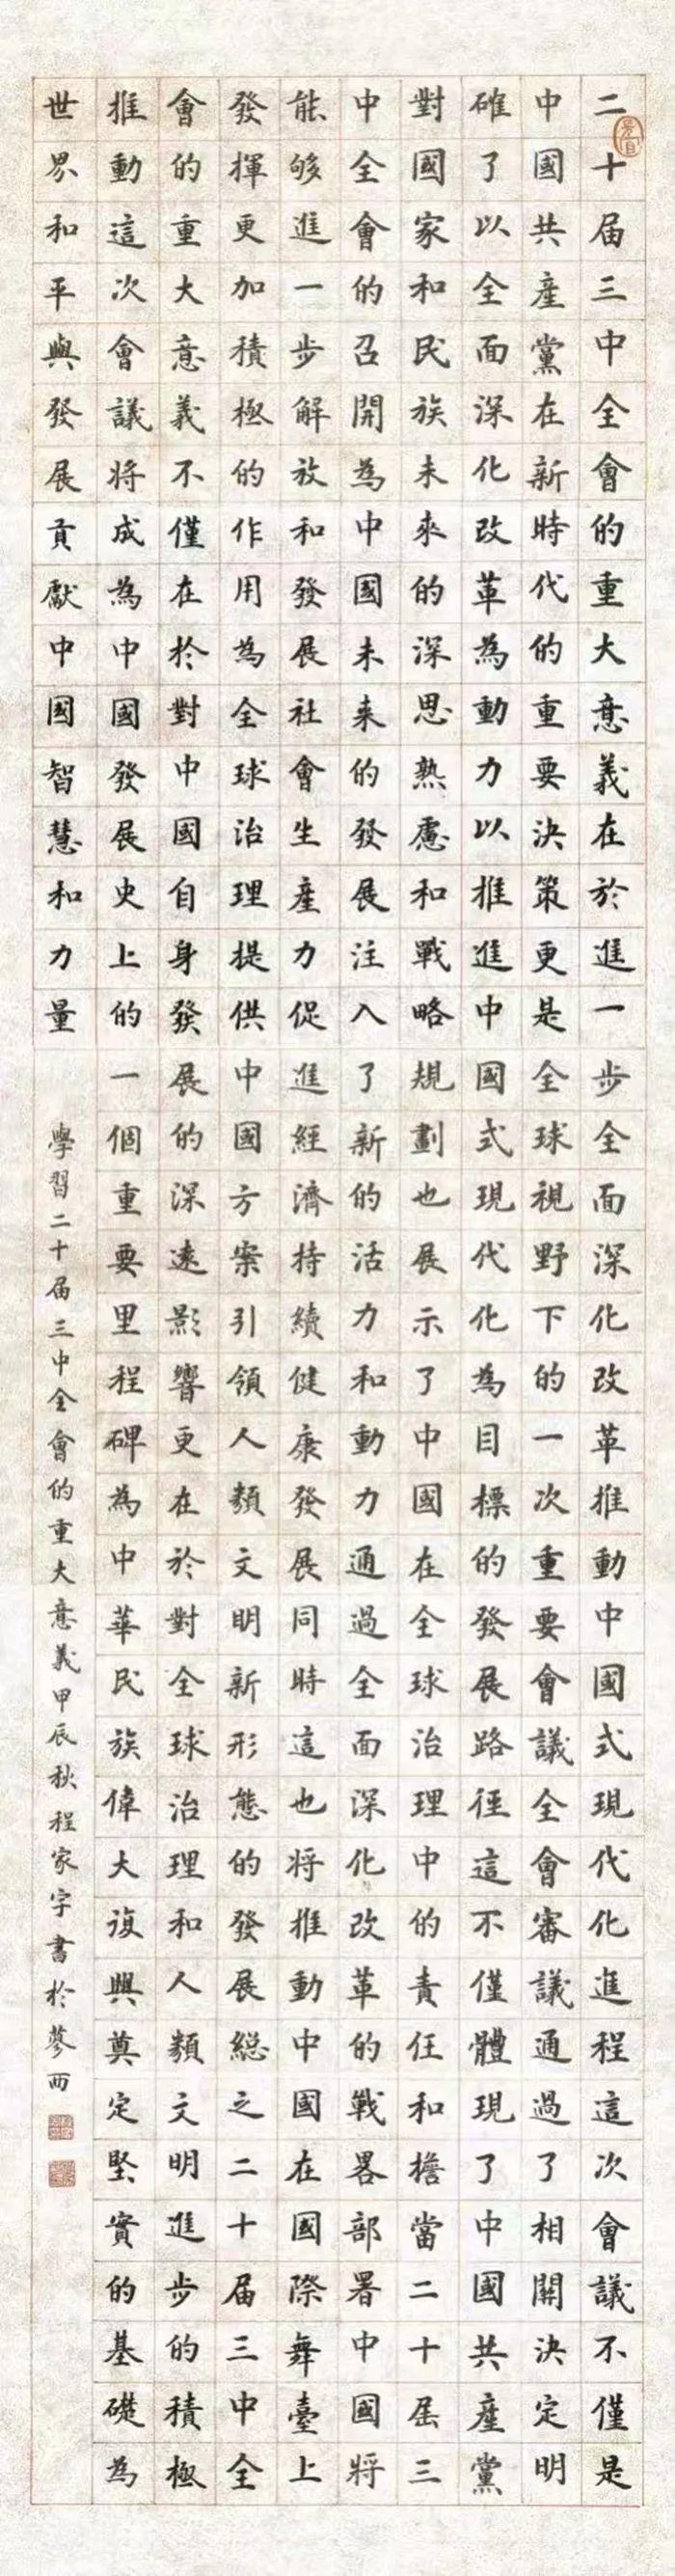 二十届三中全會的重大意義在於進一步全面深化改革推動中國式現代化進程這次會議不僅是
中國共產黨在新時代的重要決策更是全球視野下的一次重要會議全會審議通過了相關決定明
確了以全面深化改革為動力以推進中國式現代化為目標的發展路徑這不僅體現了中國共產黨
對國家和民族未來的深思熟慮和戰略規劃也展示了中國在全球治理中的責任和擔當二十屆三
中全會的召開為中國未来的發展注入了新的活力和動力通過全面深化改革的戰畧部署中國將
能够進一步解放和發展社會生產力促進經濟持續健康發展同時這也将推動中國在國際舞臺上
發揮更加積極的作用為全球治理提供中國方案引領人類文明新形態的發展總之二十届三中全
會的重大意義不僅在於對中國自身發展的深遠影響更在於對全球治理和人類文明進步的積極
推動這次會議將成為中國發展史上的一個重要里程碑為中華民族偉大復興奠定堅實的基礎為
世界和平與發展貢獻中國智慧和力量
學習二十届三中全會的重大意義甲辰秋程家字書於蓼西